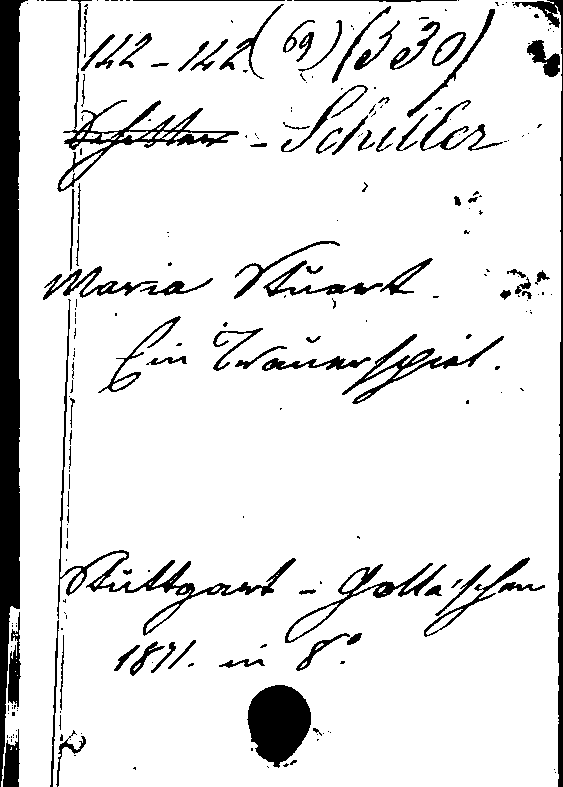 142 - 142 (69) (330)
Schiller - Schiller
Maria Stuart.
Ein Trauerspiel.
Stuttgart - Cotta'schen
1871. in 8º.